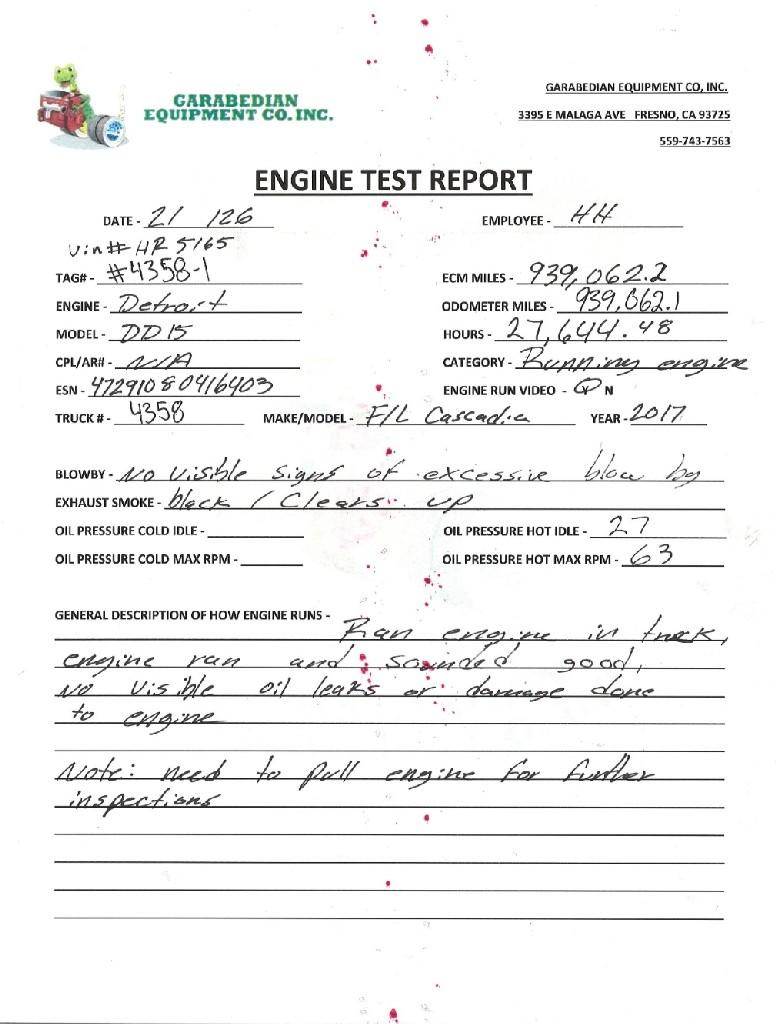 GARABEDIAN
EQUIPMENT CO. INC.
GARABEDIAN EQUIPMENT CO, INC.
3395 E MALAGA AVE FRESNO, CA 93725
559-743-7563
ENGINE TEST REPORT
DATE - 21 /26 EMPLOYEE - HH
Vin# HR 5165
TAG# - #4358-1 ECM MILES - 939,062.2
ENGINE - Detroit ODOMETER MILES - 939,062.1
MODEL - DD15 HOURS - 27,644.48
CPL/AR# - N/A CATEGORY - Running engine
ESN - 472910S0416403 ENGINE RUN VIDEO - Y N
TRUCK # - 4358 MAKE/MODEL - F/L Cascadia YEAR - 2017
BLOWBY - No visible signs of excessive blow by
EXHAUST SMOKE - black / Clears up
OIL PRESSURE COLD IDLE - OIL PRESSURE HOT IDLE - 27
OIL PRESSURE COLD MAX RPM - OIL PRESSURE HOT MAX RPM - 63
GENERAL DESCRIPTION OF HOW ENGINE RUNS - Ran engine in truck,
engine ran and sounded good,
No visible oil leaks or damage done
to engine
Note: need to pull engine for further
inspections